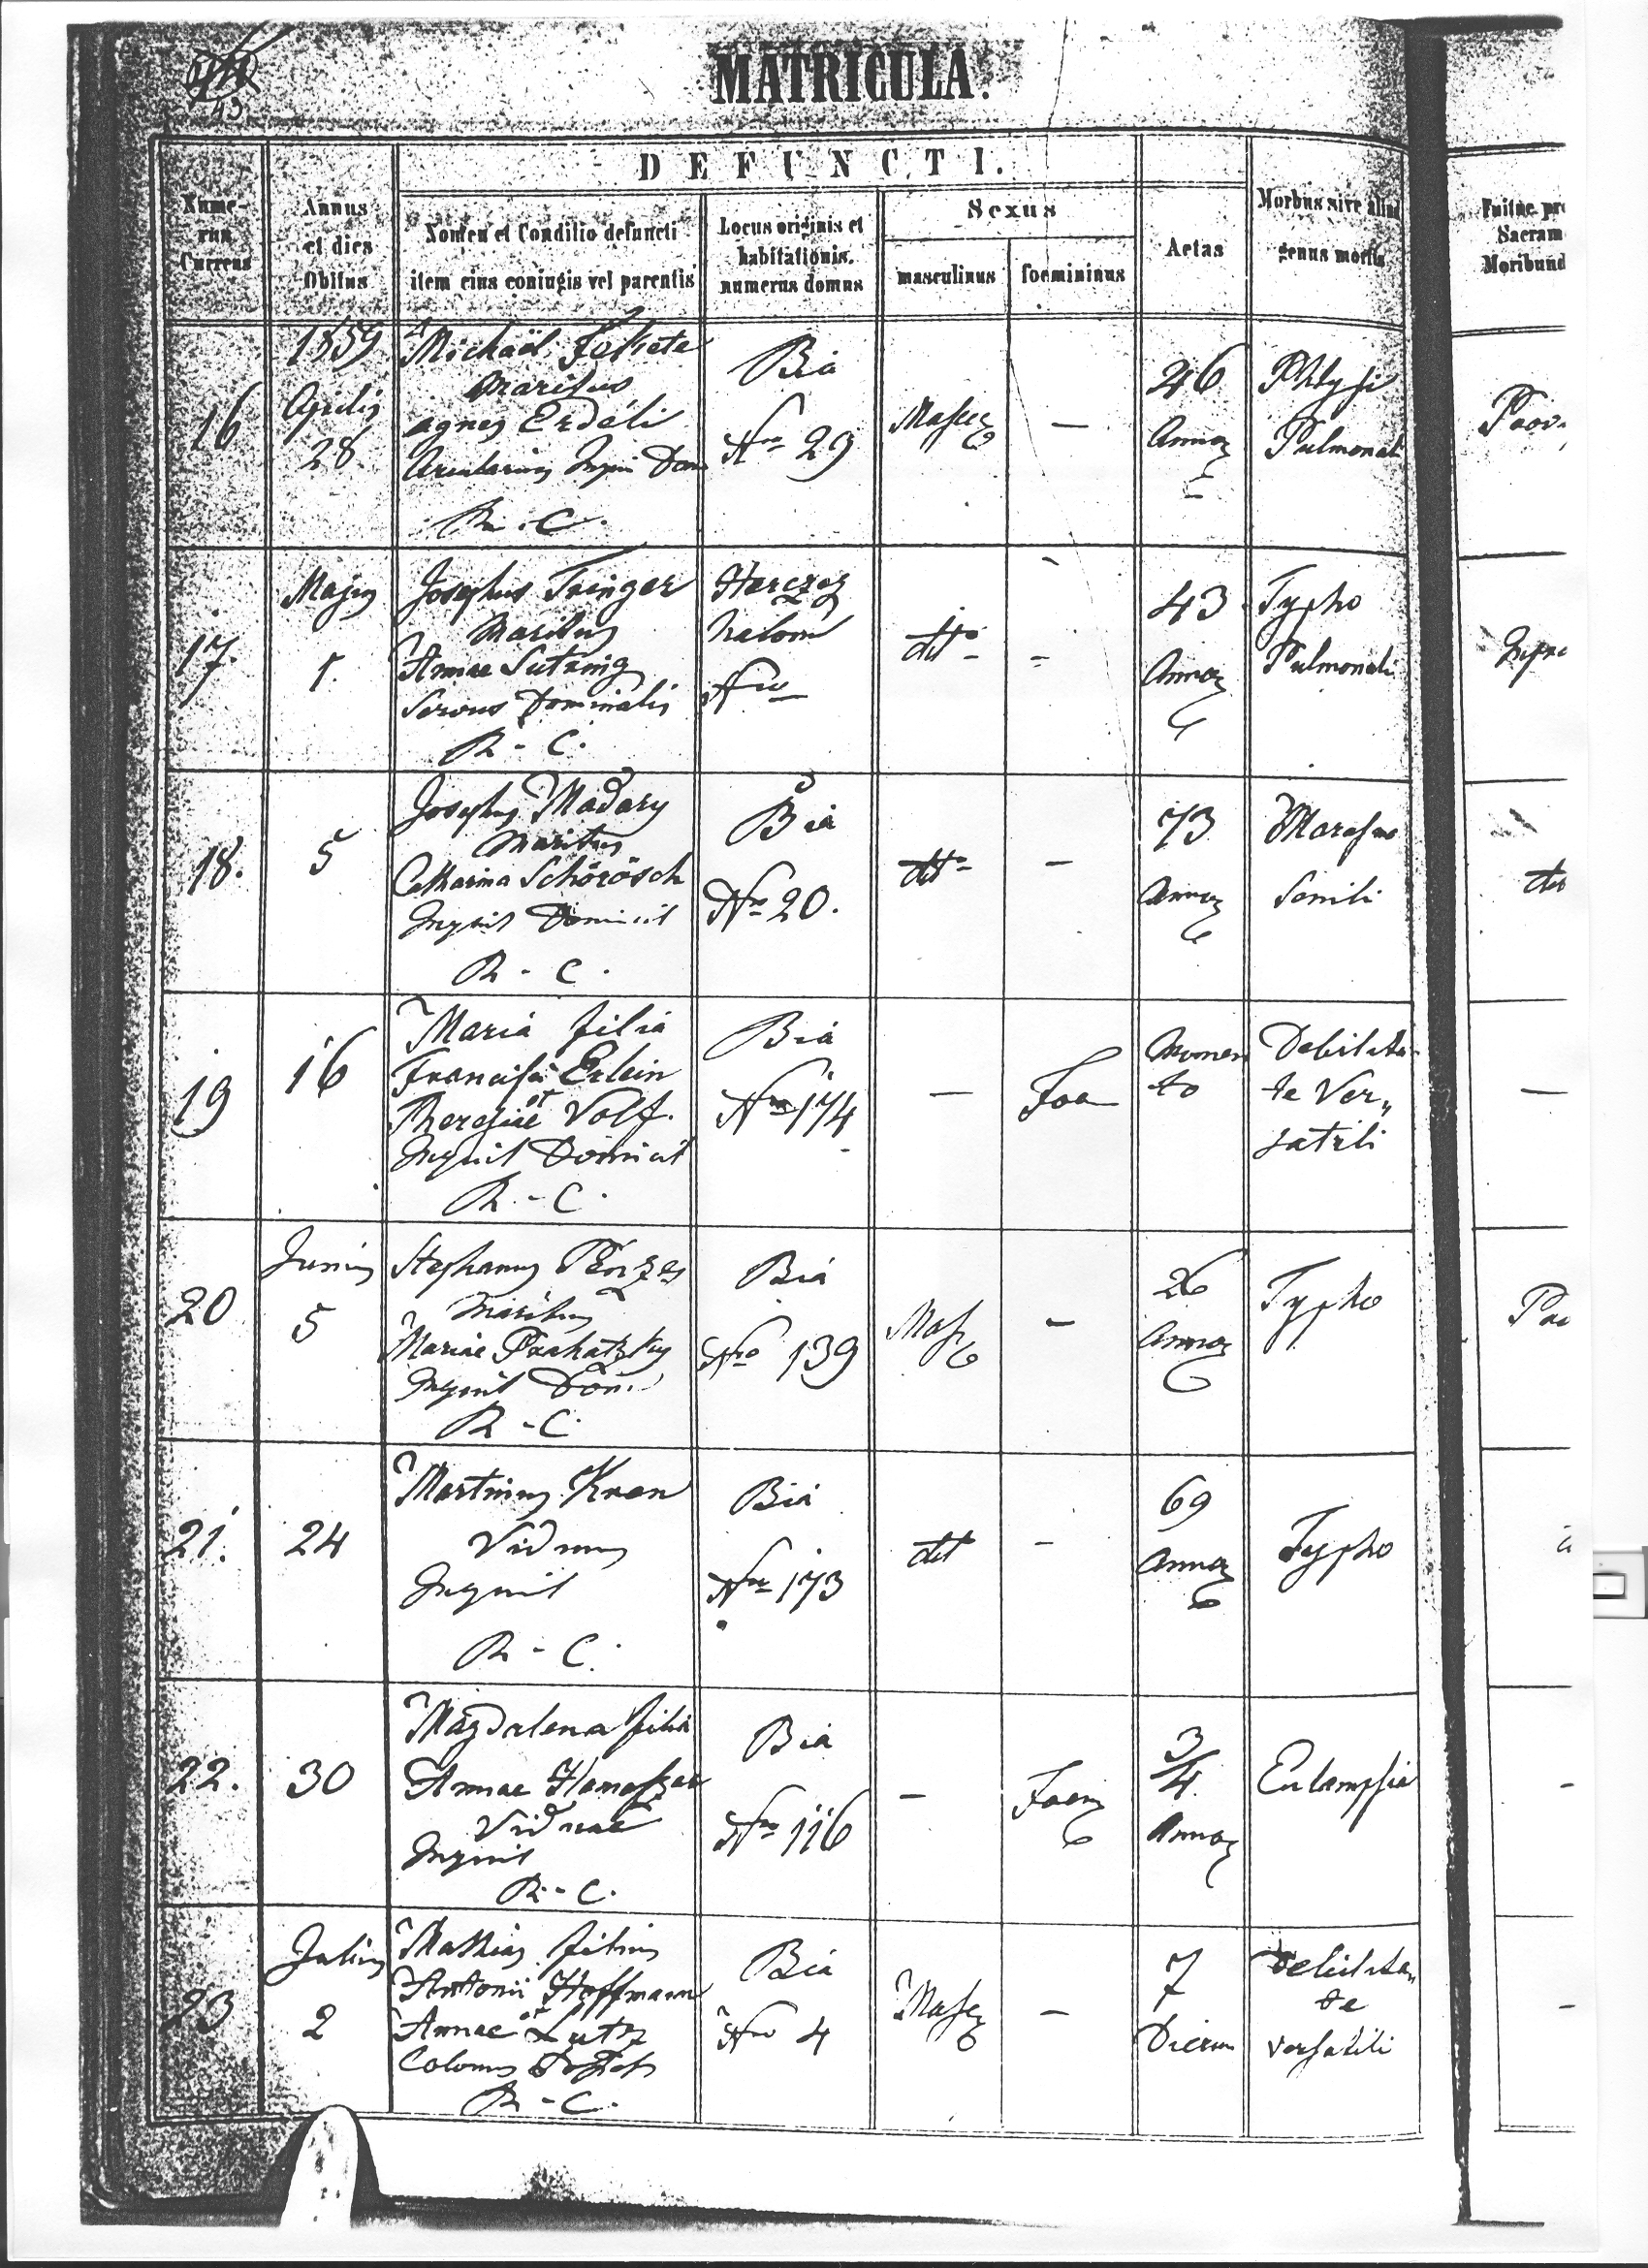 49
MATRICULA.
DEFUNCTI.
Nume-
rus
Currens
Annus
et dies
Obitus
Nomen et Conditio defuncti
item eius coniugis vel parentis
Locus originis et
habitationis.
numerus domus
Sexus
masculinus
foemininus
Aetas
Morbus sive aliud
genus mortis
Fuitne pro
Sacram
Moribund
16
1859
Aprilis
28
Michaël Fekete
maritus
agnes Erdéli
Arcularius Inquil Dom
R. C.
Bia
Nro 29
Masc
—
46
Annor
Phtysi
Pulmonali
Prov
17.
Majus
1.
Josephus Tringer
Maritus
Annae
Servus Dominalis
R - C.
Herczeg
halom
Nro —
dtto
-
43
Annor
Typho
Pulmonali
18.
5
Josephus Madary
Maritus
Catharina Schörösch
Inquil Domicil
R - C.
Bia
Nro 20.
dtto
—
73
Annor
Marasmo
Senili
19
16
Maria filia
Francisci Erlein
et
Theresiae Volf.
Inquil Domicil
R. - C.
Bia
Nro 174
—
Foe
Momen
to
Debilita-
te Ver„
satili
—
20
Junius
5
Stephanus Pörzes
Maritus
Mariae Prahatzky
Inquil Dom.
R - C.
Bia
Nro 139
Masc
—
26
Annor
Typho
21.
24
Martinus Kron
Viduus
Inquil
R - C.
Bia
Nro 173
dtt
-
69
Annor
Typho
22.
30
Magdalena filia
Annae
Viduae
Inquil
R - C.
Bia
Nro 116
—
Foem
3/4
Annor
Eclampsia
-
23
Julius
2
Mathias filius
Antonii Hoffmann
et
Annae Lutz
Colonus
R - C.
Bia
Nro 4
Masc
—
7
Dierum
Debilita„
te
versatili
-